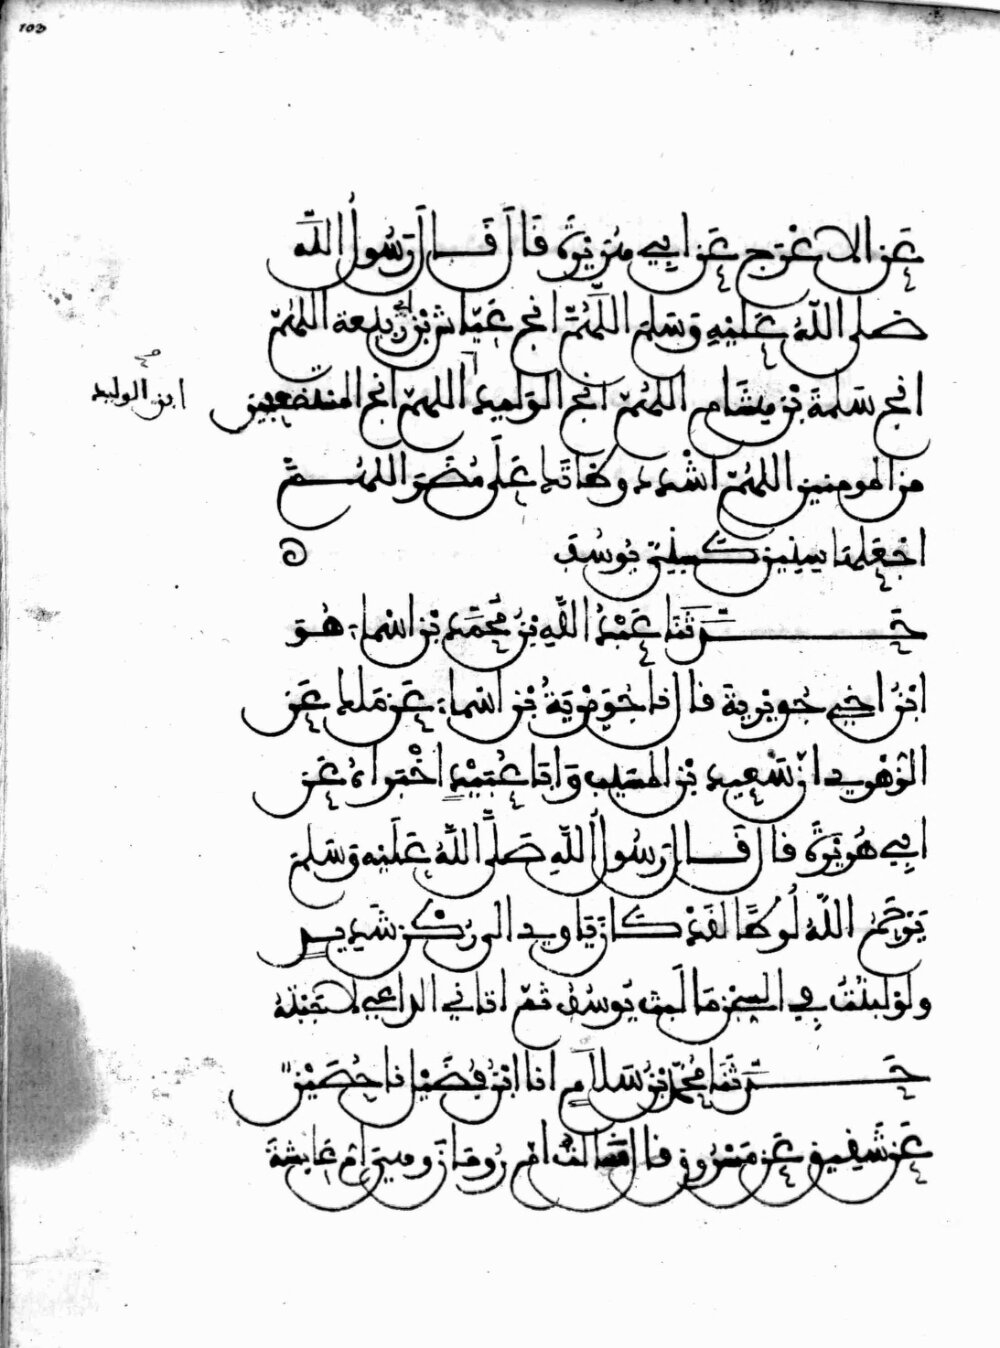 103
عَنِ الاعْرَجِ عَن ابِي هُرَيْرَةَ قَالَ قَالَ رَسُولُ اللَّه
صلى اللهُ عَلَيْهِ وَسَلمَ اللَّهُمَّ انج عَيّاشَ بْنَ ابي ربيعة اللهُمّ
انج سَلمةَ بْن هِشَام اللهُمّ انج الوَلِيد اللهمّ انج المستضعفين
ابن الوليد
من المومنين اللهُمّ اشْدد وطاتَك عَلَى مُضَر اللهُمَّ
اجْعَلها سِنِين كَسِنِى يُوسُف
حَدّثَنَا عَبْدُ اللَّهِ بْنُ مُحَمَّد بْن اسْماء هُوَ
ابْنُ اخِي جُوَيْرِيةَ قال نا جُوَيْرِيَةُ بْن اسْماء عَن مَالك عَن
الزُهْرِي انّ سَعِيد بْن المسَيب وَابَا عُبَيْدٍ اخْبَراهُ عَن
ابِي هُرَيْرَةَ قال قَال رَسُولُ اللَّهِ صَلَّى اللَّهُ عَلَيْهِ وَسَلمَ
يَرْحَمُ اللهُ لُوطًا لقَدْ كَانَ يَاوِي الى رُكْن شَدِيد
ولوْ لبثْتُ فِي السِجْن مَا لَبِثَ يُوسُفُ ثمّ اتاني الداعِي لاجَبْتُهُ
حَدّثَنَا مُحَمّدُ بْنُ سَلَام انا ابْنُ فُضَيْل نا حُصَيْن
عَن شَقِيق عَن مَسْرُوق قال سَالتُ امّ رُومَانَ وهيَ امّ عَايشَةَ